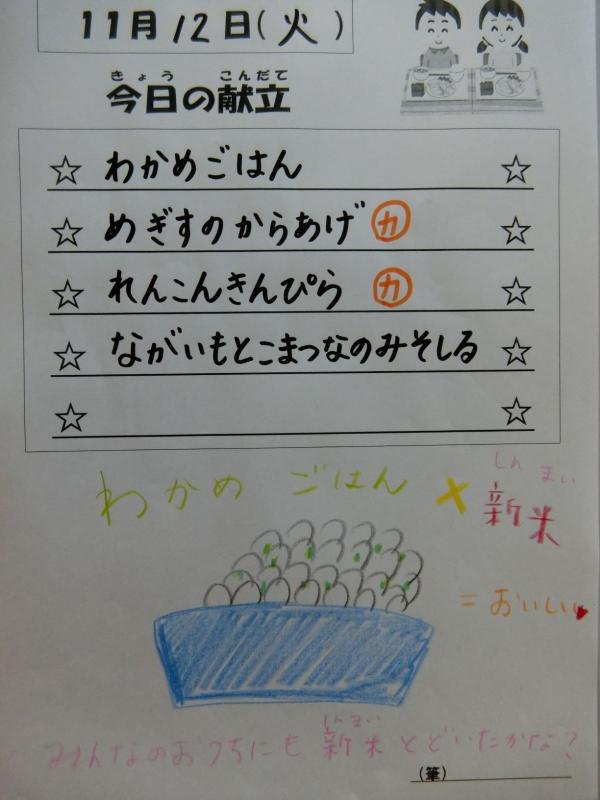 11月12日(火)
きょう こんだて
今日の献立
☆ わかめごはん ☆
☆ めぎすのからあげ カ ☆
☆ れんこんきんぴら カ ☆
☆ ながいもとこまつなのみそしる ☆
☆ ☆
しん まい
わかめ ごはん × 新米
= おいしい
しんまい
みんなのおうちにも 新米 とどいたかな?
(筆)